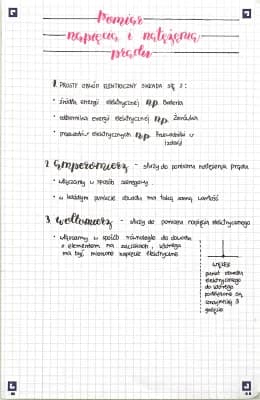 Pomiar
napięcia i natężenia
prądu
1. PROSTY OBWÓD ELEKTRYCZNY SKŁADA SIĘ Z:
• źródła energii elektrycznej np. Bateria
• odbiornika energii elektrycznej np. Żarówka
• przewodów elektrycznych np. Przewodniki w
izolacji
2. Amperomierz - służy do pomiaru natężenia prądu
• włączamy w sposób szeregowy
• w każdym punkcie obwodu ma taką samą wartość
3. Woltomierz - służy do pomiaru napięcia elektrycznego
• włączamy w sposób równoległy do obwodu
z elementem na zaciskach, którego
ma być mierzone napięcie elektryczne
WĘZEŁ
punkt obwodu
elektrycznego
do którego
podłączone są
co najmniej 3
gałęzie